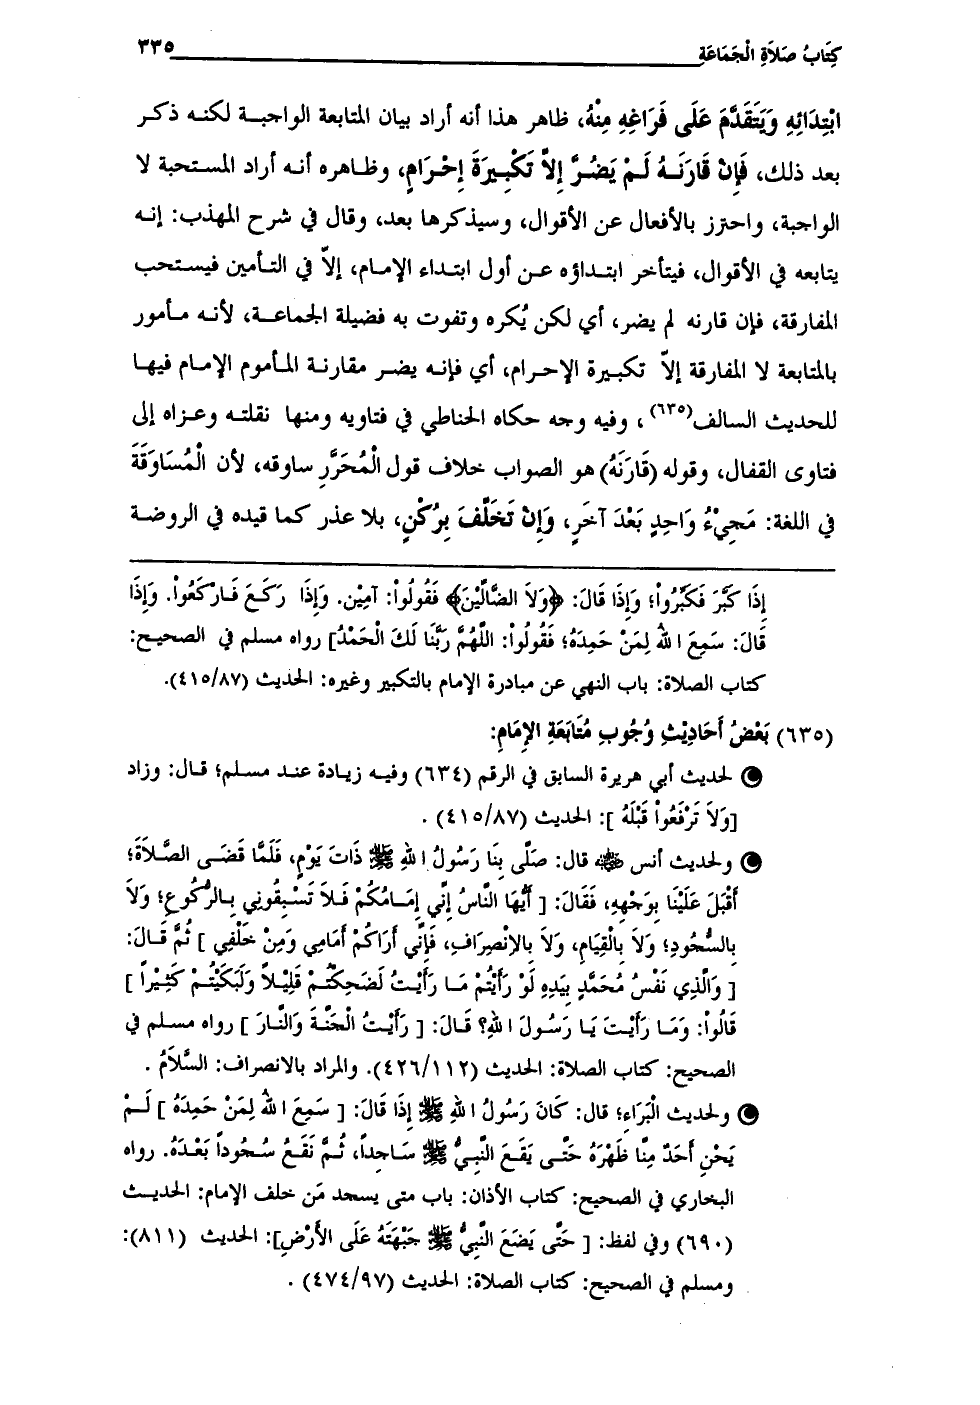 كِتَابُ صَلَاةِ الْجَمَاعَةِ ٣٣٥
ابْتِدَائِهِ وَيَتَقَدَّمَ عَلَى فَرَاغِهِ مِنْهُ، ظاهر هذا أنه أراد بيان المتابعة الواجبة لكنه ذكر
بعد ذلك، فَإِنْ قَارَنَهُ لَمْ يَضُرَّ إِلاَّ تَكْبِيرَةَ إِحْرَامٍ، وظاهره أنه أراد المستحبة لا
الواجبة، واحترز بالأفعال عن الأقوال، وسيذكرها بعد، وقال في شرح المهذب: إنه
يتابعه في الأقوال، فيتأخر ابتداؤه عن أول ابتداء الإمام، إلاّ في التأمين فيستحب
المفارقة، فإن قارنه لم يضر، أي لكن يُكره وتفوت به فضيلة الجماعة، لأنه مأمور
بالمتابعة لا المفارقة إلاّ تكبيرة الإحرام، أي فإنه يضر مقارنة المأموم الإمام فيها
للحديث السالف(٦٣٥)، وفيه وجه حكاه الحناطي في فتاويه ومنها نقلته وعزاه إلى
فتاوى القفال، وقوله (قَارَنَهُ) هو الصواب خلاف قول الْمُحَرَّرِ ساوقه، لأن الْمُسَاوَقَةَ
في اللغة: مَجِيْءُ وَاحِدٍ بَعْدَ آخَرٍ، وَإِنْ تَخَلَّفَ بِرُكْنٍ، بلا عذر كما قيده في الروضة
إِذَا كَبَّرَ فَكَبِّرُواْ؛ وَإِذَا قَالَ: ﴿وَلاَ الضَّالِّيْنَ﴾ فَقُولُواْ: آمِيْن. وَإِذَا رَكَعَ فَارْكَعُواْ. وَإِذَا
قَالَ: سَمِعَ اللهُ لِمَنْ حَمِدَهُ؛ فَقُولُواْ: اللَّهُمَّ رَبَّنَا لَكَ الْحَمْدُ] رواه مسلم في الصحيح:
كتاب الصلاة: باب النهي عن مبادرة الإمام بالتكبير وغيره: الحديث (٤١٥/٨٧).
(٦٣٥) بَعْضُ أَحَادِيْثِ وُجُوبِ مُتَابَعَةِ الإِمَامِ:
لحديث أبي هريرة السابق في الرقم (٦٣٤) وفيه زيادة عند مسلم؛ قال: وزاد
[وَلاَ تَرْفَعُواْ قَبْلَهُ ]: الحديث (٤١٥/٨٧) .
ولحديث أنس ﷺ قال: صَلَّى بِنَا رَسُولُ اللهِ ﷺ ذَاتَ يَوْمٍ، فَلَمَّا قَضَى الصَّلاَةَ؛
أَقْبَلَ عَلَيْنَا بِوَجْهِهِ، فَقَالَ: [ أَيُّهَا النَّاسُ إِنِّي إِمَامُكُمْ فَلاَ تَسْبِقُونِي بِالرُّكُوعِ؛ وَلاَ
بِالسُّجُودِ؛ وَلاَ بِالْقِيَامِ، وَلاَ بِالإِنْصِرَافِ، فَإِنِّي أَرَاكُمْ أَمَامِي وَمِنْ خَلْفِي ] ثُمَّ قَالَ:
[ وَالَّذِي نَفْسُ مُحَمَّدٍ بِيَدِهِ لَوْ رَأَيْتُمْ مَا رَأَيْتُ لَضَحِكْتُمْ قَلِيْلاً وَلَبَكَيْتُمْ كَثِيْراً ]
قَالُواْ: وَمَا رَأَيْتَ يَا رَسُولَ اللهِ؟ قَالَ: [ رَأَيْتُ الْجَنَّةَ وَالنَّارَ ] رواه مسلم في
الصحيح: كتاب الصلاة: الحديث (٤٢٦/١١٢). والمراد بالانصراف: السَّلاَمُ .
ولحديث الْبَرَاءِ؛ قال: كَانَ رَسُولُ اللهِ ﷺ إِذَا قَالَ: [ سَمِعَ اللهُ لِمَنْ حَمِدَهُ ] لَمْ
يَحْنِ أَحَدٌ مِنَّا ظَهْرَهُ حَتَّى يَقَعَ النَّبِيُّ ﷺ سَاجِداً، ثُمَّ نَقَعُ سُجُوداً بَعْدَهُ. رواه
البخاري في الصحيح: كتاب الأذان: باب متى يسجد مَن خلف الإمام: الحديث
(٦٩٠) وفي لفظ: [ حَتَّى يَضَعَ النَّبِيُّ ﷺ جَبْهَتَهُ عَلَى الأَرْضِ]: الحديث (٨١١):
ومسلم في الصحيح: كتاب الصلاة: الحديث (٤٧٤/٩٧) .